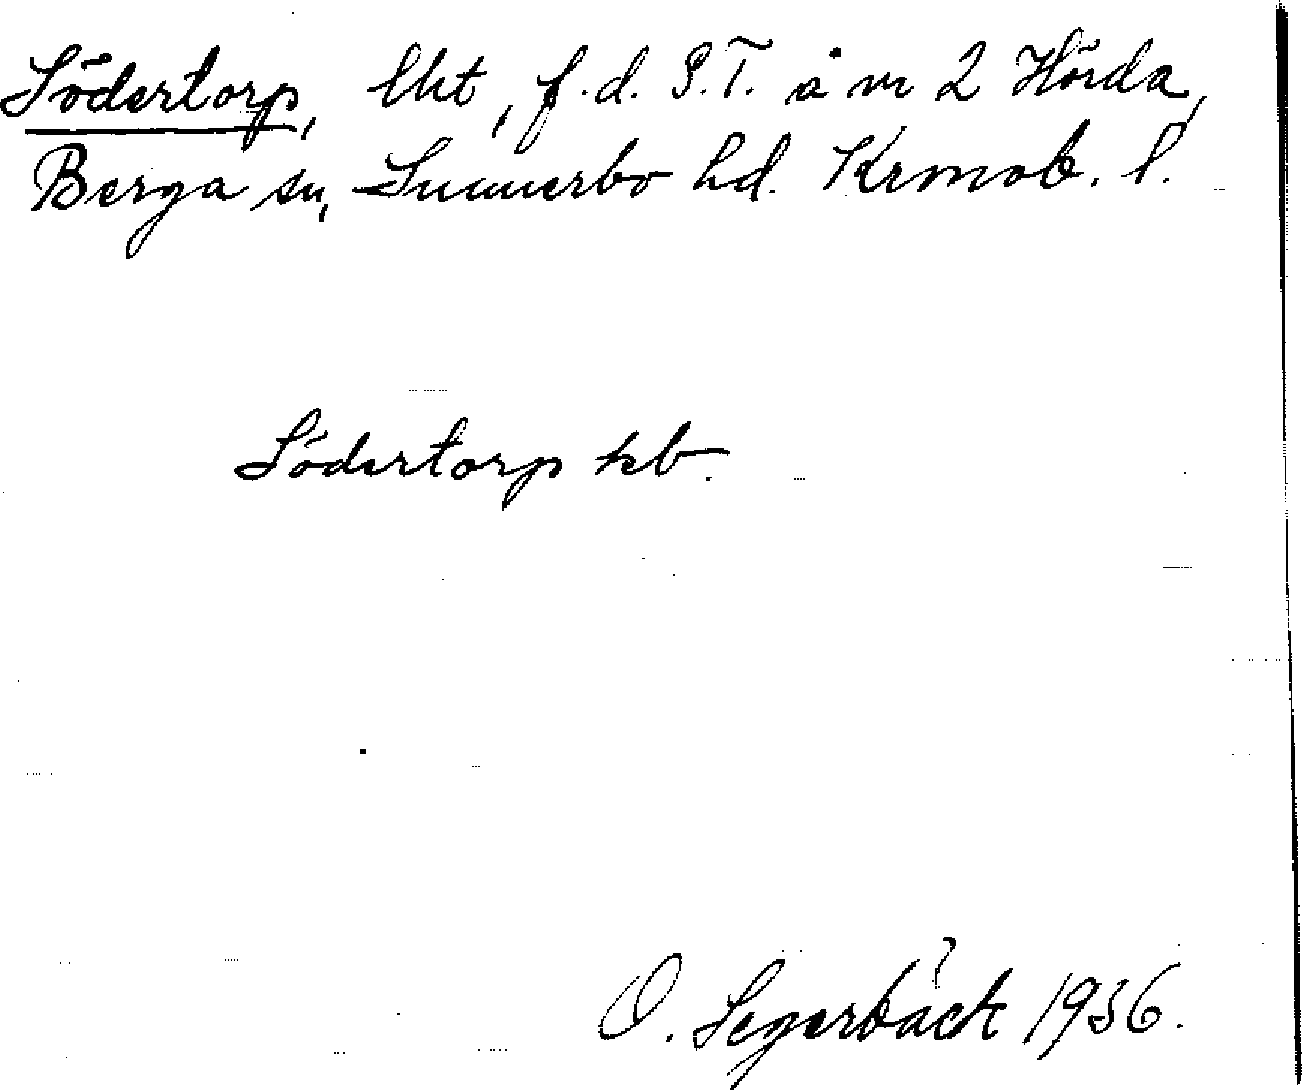 Södertorp, lht, f.d. S.T. å nr 2 Hörda,
Berga sn, Sunnerbo hd. Krmob. l.
Södertorp kb.
O. Segerbäck 1936.